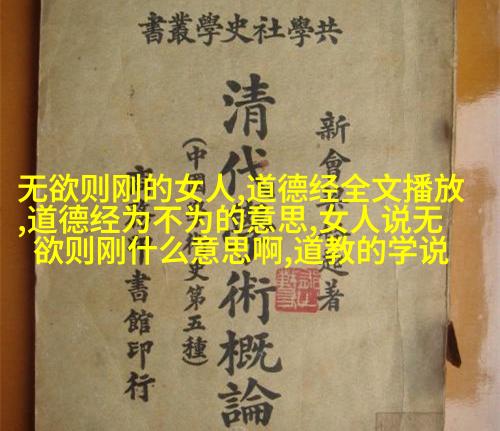 共學社史學叢書
新會
著
清代
術概論
(中
史第五種)
書館印行
无欲则刚的女人,道德经全文播放
,道德经为不为的意思,女人说无
欲则刚什么意思啊,道教的学说